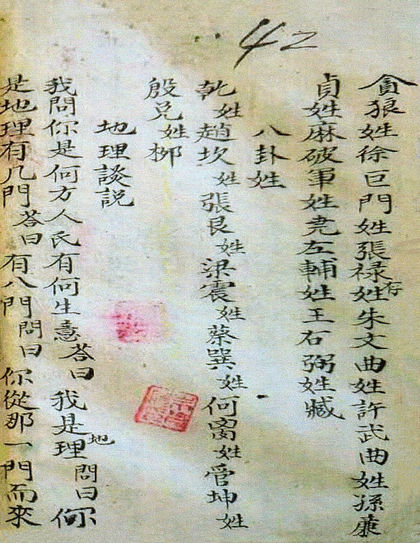 42
貪狼姓徐巨門姓張禄存姓朱文曲姓許武曲姓孫廉
貞姓麻破軍姓堯左輔姓王右弼姓臧
八卦姓
乾姓趙坎姓張艮姓梁震姓蔡巽姓何离姓管坤姓
殷兑姓柳
地理談説
我問你是何方人民有何生意答曰我是地理問曰你
是地理有几門答曰有八門問曰你從那一門而來